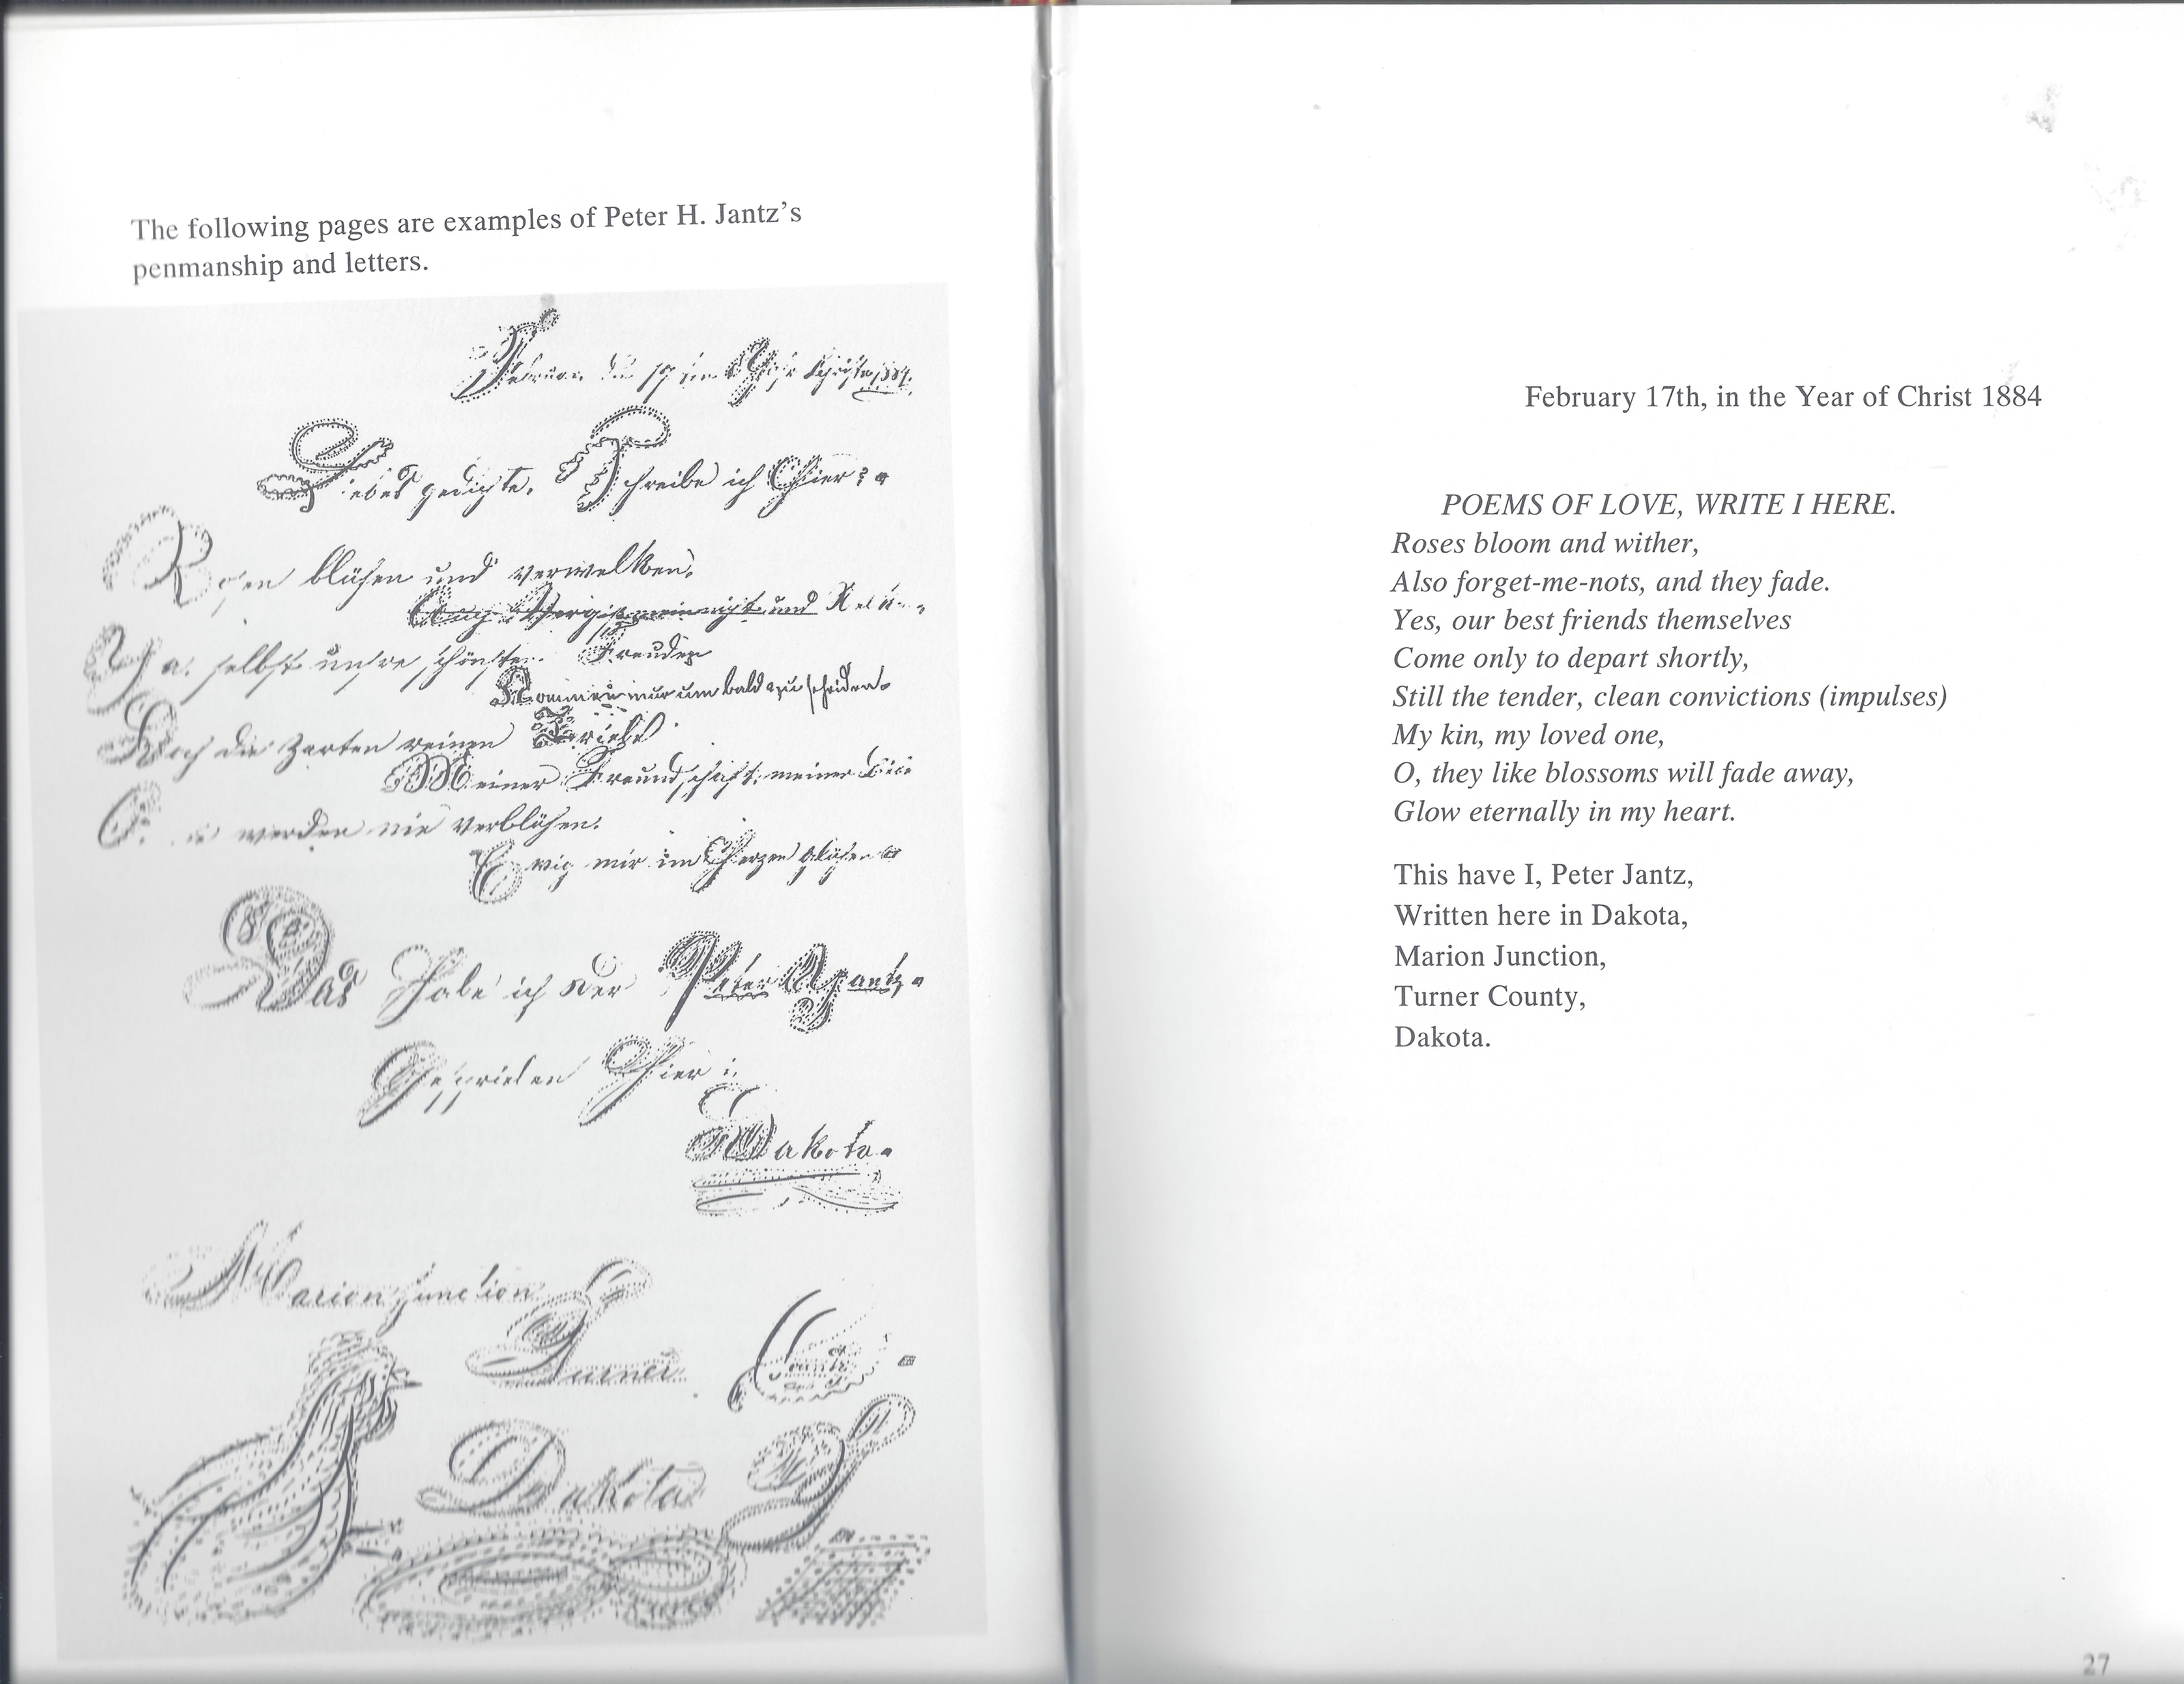 The following pages are examples of Peter H. Jantz's
penmanship and letters.
Februar. den 17 im Jahr Christe 1884.
Liebes gedichte. Schreibe ich Hier:
Rosen blühen und verwelken.
Auch Vergissmeinnicht und
Ja. selbst unsre schönsten. Freuden
Kommen nur um bald zu scheiden.
Doch die Zarten reinen Triebe
Meiner Freundschaft. meiner
werden nie verblühen.
Ewig mir im Herzen blühen
Das Habe ich der Peter Jantz.
Geschrieben Hier in
Dakota.
Marion Junction
Turner County
Dakota
February 17th, in the Year of Christ 1884
POEMS OF LOVE, WRITE I HERE.
Roses bloom and wither,
Also forget-me-nots, and they fade.
Yes, our best friends themselves
Come only to depart shortly,
Still the tender, clean convictions (impulses)
My kin, my loved one,
O, they like blossoms will fade away,
Glow eternally in my heart.
This have I, Peter Jantz,
Written here in Dakota,
Marion Junction,
Turner County,
Dakota.
27